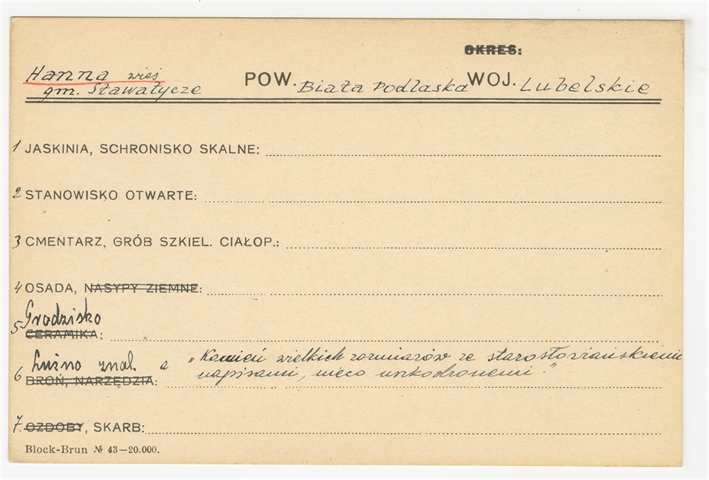 OKRES:
Hanna wieś POW. Biała Podlaska WOJ. Lubelskie
gm. Sławatycze
1 JASKINIA, SCHRONISKO SKALNE:
2 STANOWISKO OTWARTE:
3 CMENTARZ, GRÓB SZKIEL. CIAŁOP.:
4 OSADA, NASYPY ZIEMNE:
Grodzisko
5 CERAMIKA:
Luźno znal. a „Kamień wielkich rozmiarów ze starosłowiańskiemi
6 BROŃ, NARZĘDZIA: napisami, nieco uszkodzonemi."
7. OZDOBY, SKARB:
Block-Brun № 43—20.000.